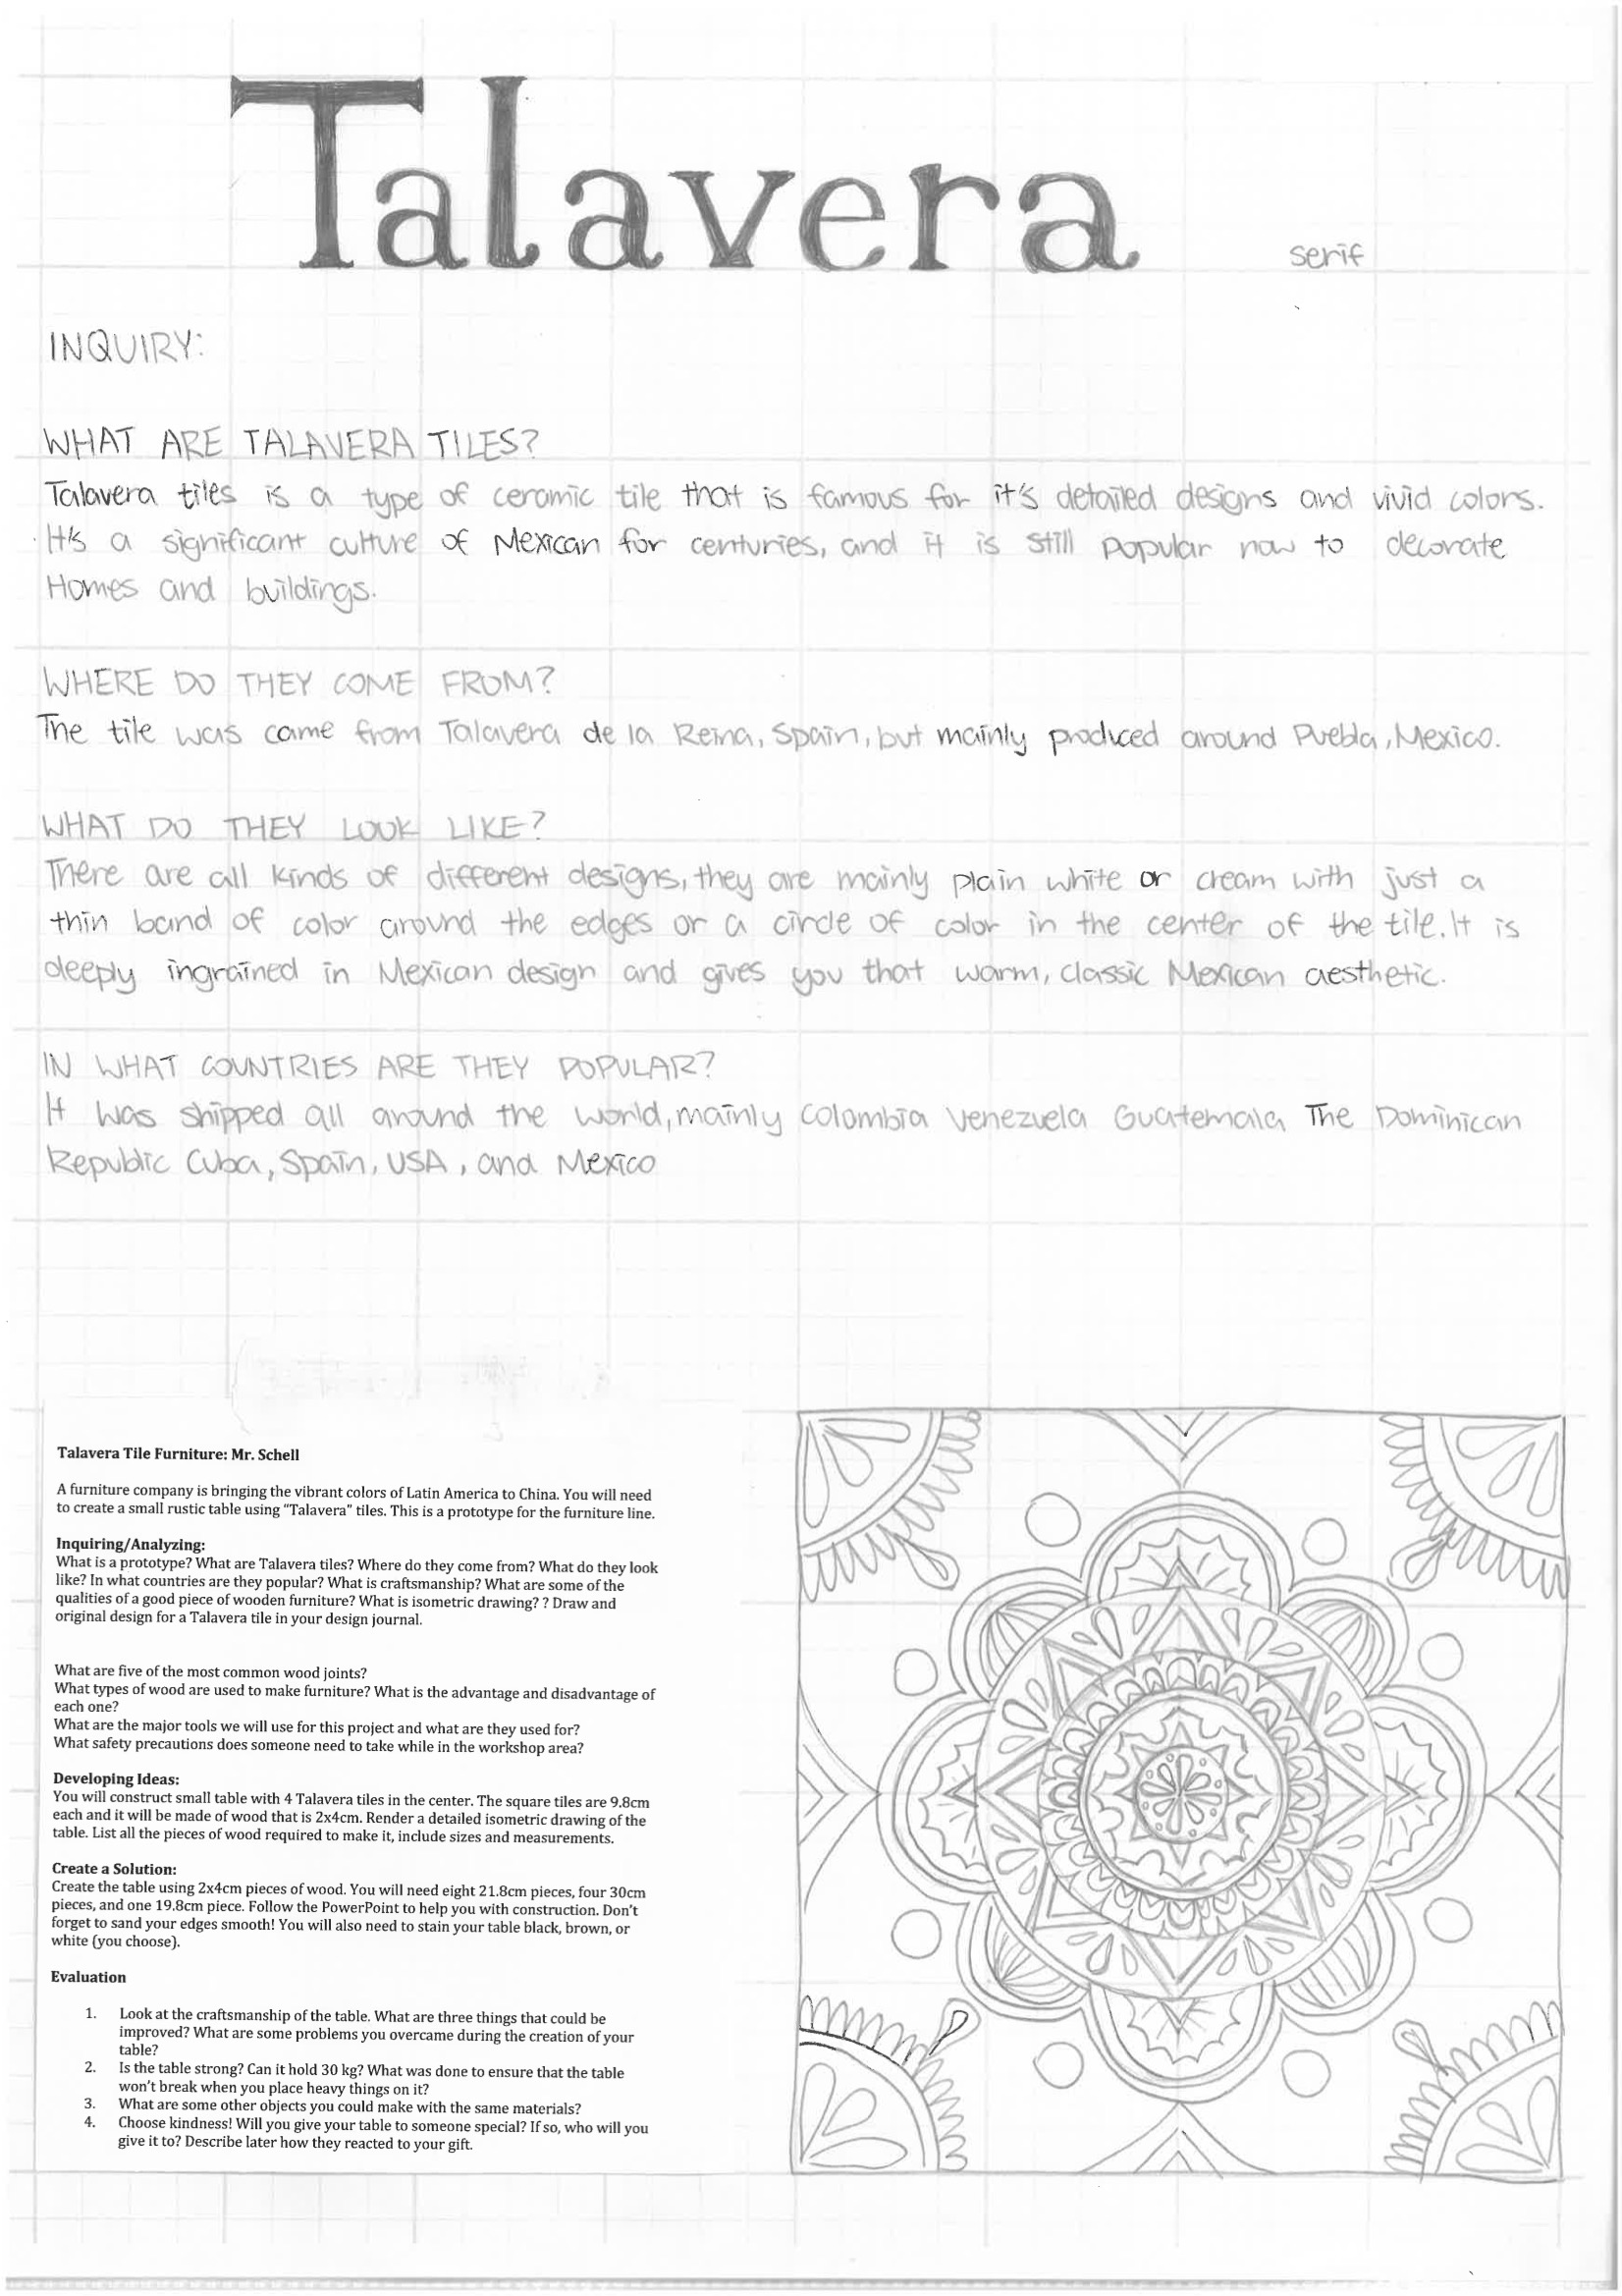 Talavera
serif
INQUIRY:
WHAT ARE TALAVERA TILES?
Talavera tiles is a type of ceramic tile that is famous for it's detailed designs and vivid colors.
It's a significant culture of Mexican for centuries, and it is still popular now to decorate
Homes and buildings.
WHERE DO THEY COME FROM?
The tile was came from Talavera de la Reina, Spain, but mainly produced around Puebla, Mexico.
WHAT DO THEY LOOK LIKE?
There are all kinds of different designs, they are mainly plain white or cream with just a
thin band of color around the edges or a circle of color in the center of the tile. It is
deeply ingrained in Mexican design and gives you that warm, classic Mexican aesthetic.
IN WHAT COUNTRIES ARE THEY POPULAR?
It was shipped all around the world, mainly Colombia Venezuela Guatemala The Dominican
Republic Cuba, Spain, USA, and Mexico
Talavera Tile Furniture: Mr. Schell
A furniture company is bringing the vibrant colors of Latin America to China. You will need
to create a small rustic table using "Talavera" tiles. This is a prototype for the furniture line.
Inquiring/Analyzing:
What is a prototype? What are Talavera tiles? Where do they come from? What do they look
like? In what countries are they popular? What is craftsmanship? What are some of the
qualities of a good piece of wooden furniture? What is isometric drawing? ? Draw and
original design for a Talavera tile in your design journal.
What are five of the most common wood joints?
What types of wood are used to make furniture? What is the advantage and disadvantage of
each one?
What are the major tools we will use for this project and what are they used for?
What safety precautions does someone need to take while in the workshop area?
Developing Ideas:
You will construct small table with 4 Talavera tiles in the center. The square tiles are 9.8cm
each and it will be made of wood that is 2x4cm. Render a detailed isometric drawing of the
table. List all the pieces of wood required to make it, include sizes and measurements.
Create a Solution:
Create the table using 2x4cm pieces of wood. You will need eight 21.8cm pieces, four 30cm
pieces, and one 19.8cm piece. Follow the PowerPoint to help you with construction. Don't
forget to sand your edges smooth! You will also need to stain your table black, brown, or
white (you choose).
Evaluation
1. Look at the craftsmanship of the table. What are three things that could be
improved? What are some problems you overcame during the creation of your
table?
2. Is the table strong? Can it hold 30 kg? What was done to ensure that the table
won't break when you place heavy things on it?
3. What are some other objects you could make with the same materials?
4. Choose kindness! Will you give your table to someone special? If so, who will you
give it to? Describe later how they reacted to your gift.